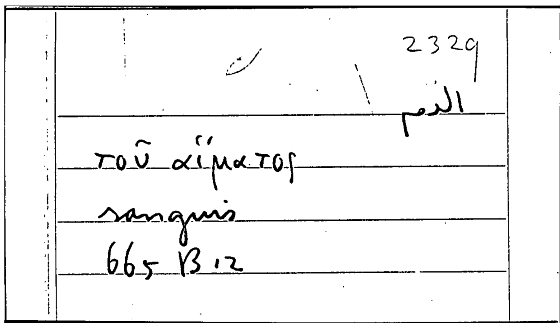 2329
الدم
τοῦ αἵματος
sanguis
665 B 12